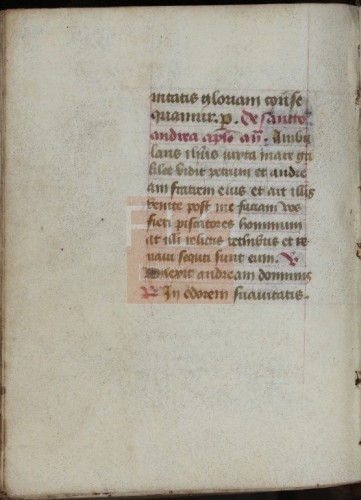 nitatis gloriam conse
quamur. p. De sancto
andrea aplo añ. Ambu
lans ihus iuxta mare ga
lilee vidit petrum et andre
am fratrem eius et ait illis
venite post me faciam vos
fieri piscatores hominum
at illi relictis rethibus et
navi secuti sunt eum. V
Dilexit andream dominus
R In odorem suavitatis.